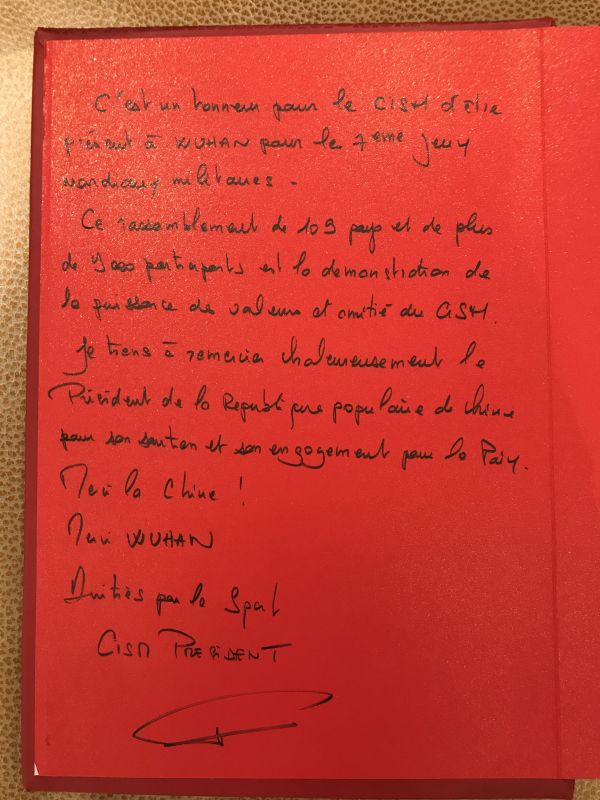 C'est un honneur pour le CISM d'être
présent à WUHAN pour le 7eme jeux
mondiaux militaires.
Ce rassemblement de 109 pays et de plus
de 9000 participants est la demonstration de
la puissance des valeurs et amitié du CISM.
Je tiens à remercier chaleureusement le
Président de la Republique populaire de Chine
pour son soutien et son engagement pour la Paix.
Merci la Chine !
Merci WUHAN
Amitiés par le Sport
CISM PRESIDENT